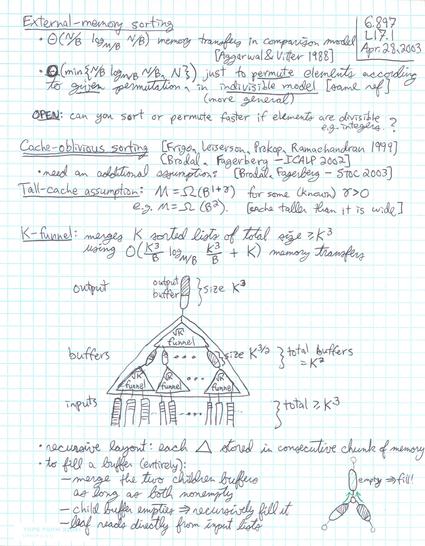 External-memory sorting
6.897
L17.1
Apr. 28, 2003
• Θ(N/B log_{M/B} N/B) memory transfers in comparison model
[Aggarwal & Vitter 1988]
• Θ(min{N/B log_{M/B} N/B, N}) just to permute elements according
to given permutation, in indivisible model [same ref]
(more general)
OPEN: can you sort or permute faster if elements are divisible
e.g. integers ?
Cache-oblivious sorting [Frigo, Leiserson, Prokop, Ramachandran 1999]
[Brodal, Fagerberg - ICALP 2002]
• need an additional assumption: [Brodal, Fagerberg - STOC 2003]
Tall-cache assumption: M = Ω(B^{1+γ}) for some (known) γ>0
e.g. M = Ω(B²). [cache taller than it is wide]
K-funnel: merges K sorted lists of total size ≥K³
using O(K³/B log_{M/B} K³/B + K) memory transfers
output
output
buffer
} size K³
√K
funnel
buffers
} size K^{3/2}
} total buffers
= K²
√K
funnel
√K
funnel
√K
funnel
inputs
} total ≥K³
• recursive layout: each △ stored in consecutive chunk of memory
• to fill a buffer (entirely):
– merge the two children buffers
as long as both nonempty
– child buffer empties ⇒ recursively fill it
– leaf reads directly from input lists
empty ⇒ fill!